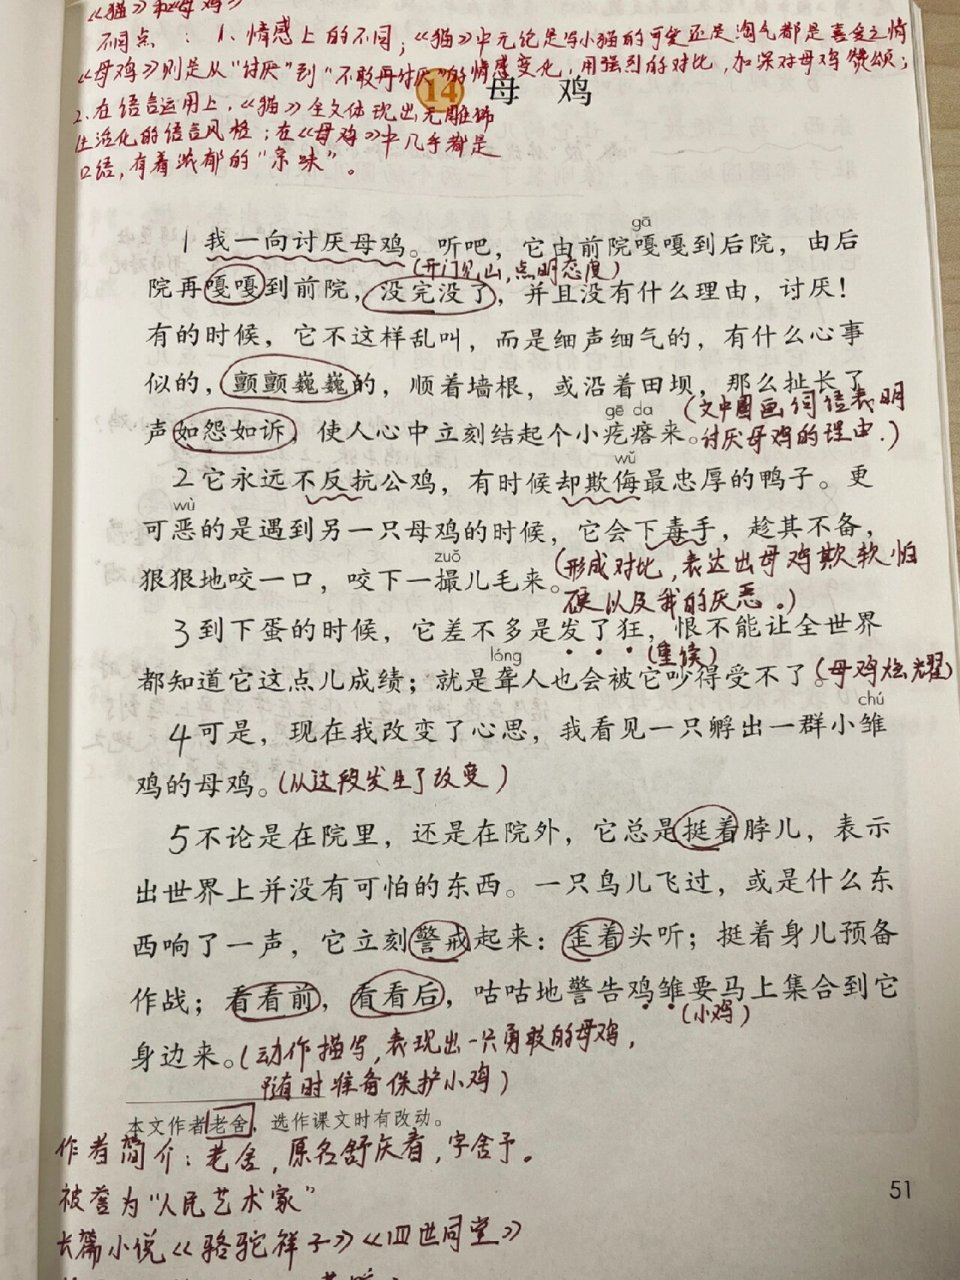 《猫》和《母鸡》
不同点：1、情感上的不同；《猫》中无论是写小猫的可爱还是淘气都是喜爱之情
《母鸡》则是从“讨厌”到“不敢再讨厌”的情感变化，用强烈的对比，加深对母鸡赞颂；
14 母鸡
2、在语言运用上，《猫》全文体现出无雕饰
生活化的语言风格；在《母鸡》中几乎都是
口语，有着浓郁的“京味”。
gā
1我一向讨厌母鸡。听吧，它由前院嘎嘎到后院，由后
（开门见山，点明态度）
院再嘎嘎到前院，没完没了，并且没有什么理由，讨厌！
有的时候，它不这样乱叫，而是细声细气的，有什么心事
似的，颤颤巍巍的，顺着墙根，或沿着田坝，那么扯长了
gē da
声如怨如诉，使人心中立刻结起个小疙瘩来。
（文中圈画词语表明
讨厌母鸡的理由.）
wǔ
2它永远不反抗公鸡，有时候却欺侮最忠厚的鸭子。更
wù
可恶的是遇到另一只母鸡的时候，它会下毒手，趁其不备，
zuǒ
狠狠地咬一口，咬下一撮儿毛来。
（形成对比，表达出母鸡欺软怕
硬以及我的厌恶。）
3到下蛋的时候，它差不多是发了狂，恨不能让全世界
lóng
都知道它这点儿成绩；就是聋人也会被它吵得受不了。（母鸡炫耀）
chú
4可是，现在我改变了心思，我看见一只孵出一群小雏
鸡的母鸡。（从这段发生了改变）
5不论是在院里，还是在院外，它总是挺着脖儿，表示
出世界上并没有可怕的东西。一只鸟儿飞过，或是什么东
西响了一声，它立刻警戒起来：歪着头听；挺着身儿预备
作战；看看前，看看后，咕咕地警告鸡雏要马上集合到它
（小鸡）
身边来。（动作描写，表现出一只勇敢的母鸡，
随时准备保护小鸡）
本文作者老舍，选作课文时有改动。
作者简介：老舍，原名舒庆春，字舍予。
被誉为“人民艺术家”
51
长篇小说《骆驼祥子》《四世同堂》